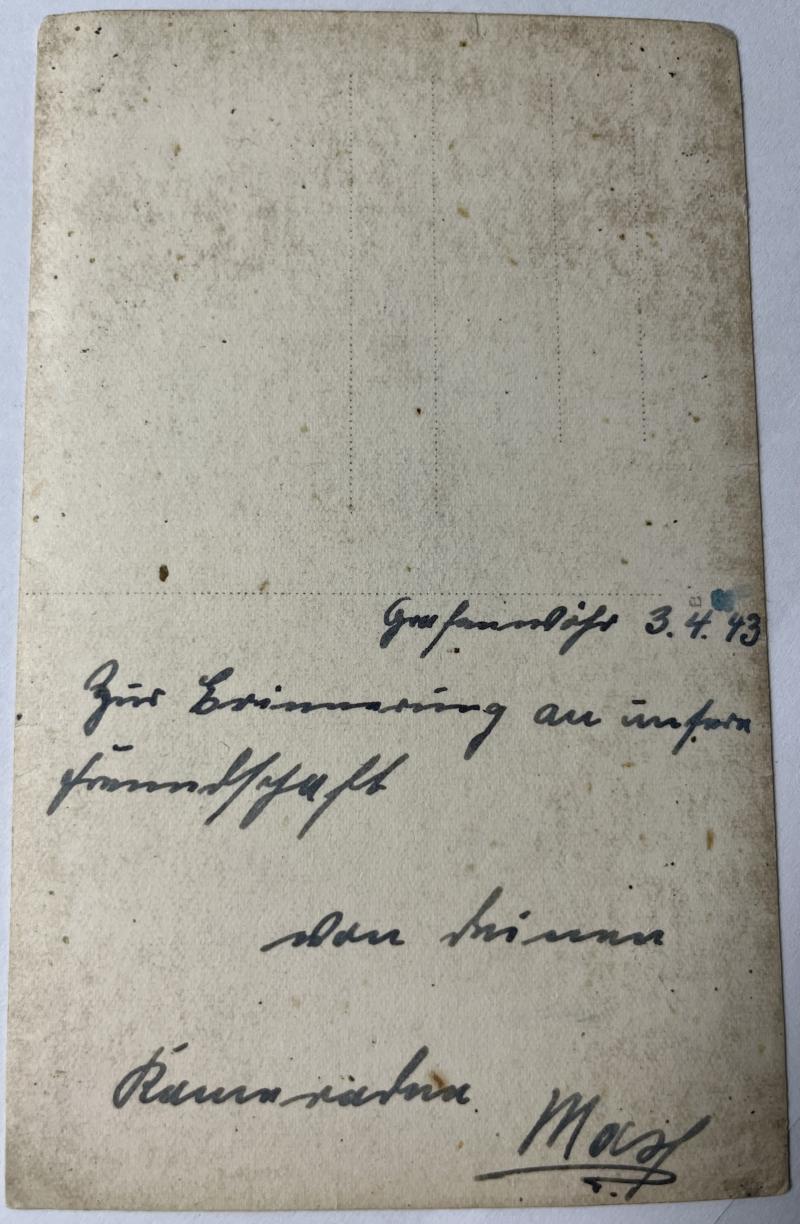 Grafenwöhr 3.4.43
Zur Erinnerung an unsere
Freundschaft
von deinen
Kameraden